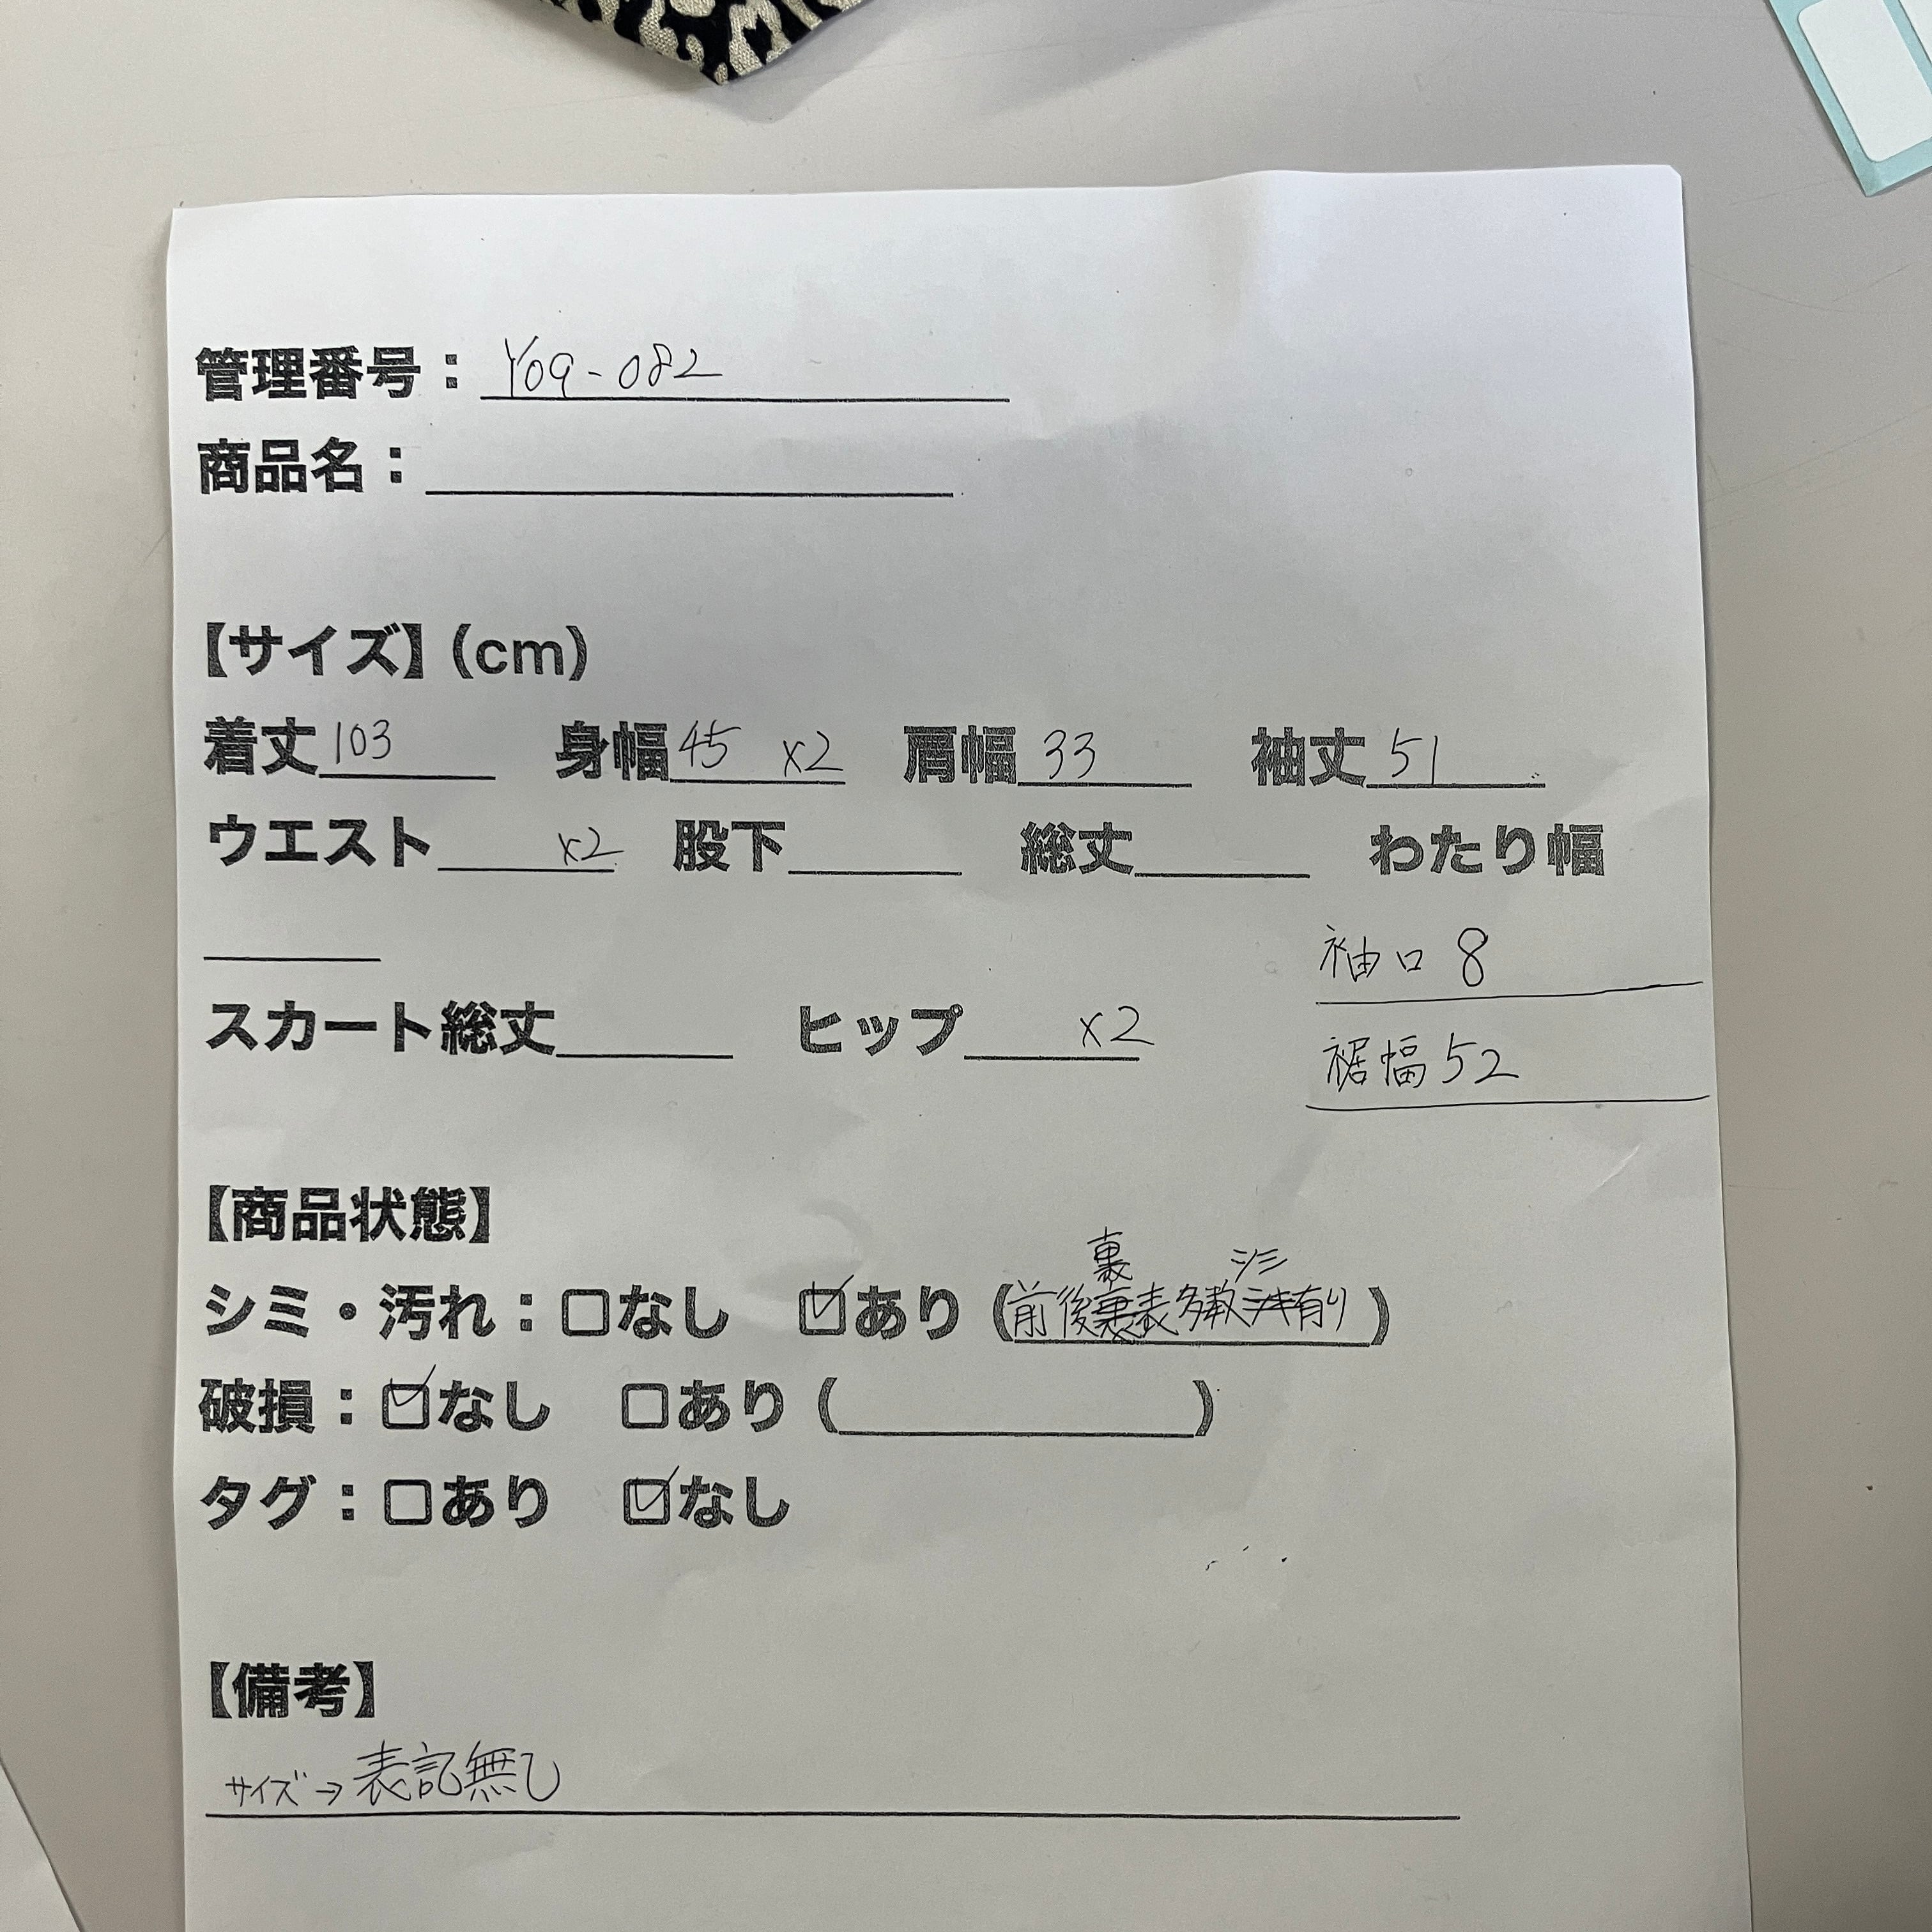 管理番号：Y09-082
商品名：
【サイズ】(cm)
着丈103 身幅45 ×2 肩幅33 袖丈51
ウエスト ×2 股下 総丈 わたり幅
袖口 8
スカート総丈 ヒップ ×2
裾幅 52
【商品状態】
裏 シミ
シミ・汚れ：□なし ☑あり (前後表多数有り)
破損：☑なし □あり ( )
タグ：□あり ☑なし
【備考】
サイズ→表記無し